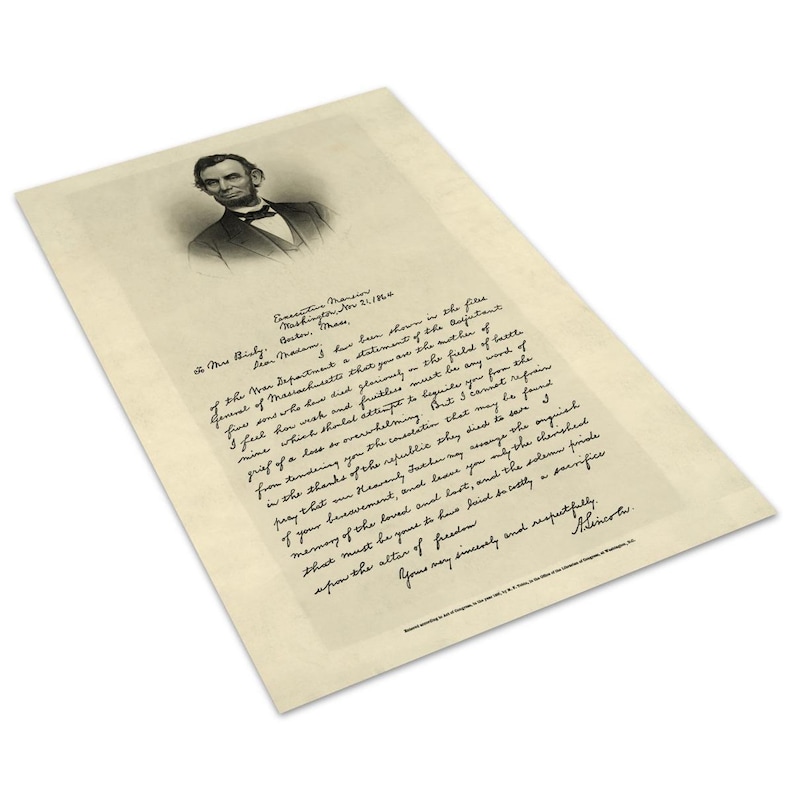 Executive Mansion
Washington, Nov 21, 1864
To Mrs Bixby,
Boston, Mass,
Dear Madam,
I have been shown in the files
of the War Department a statement of the Adjutant
General of Massachusetts that you are the mother of
five sons who have died gloriously on the field of battle
I feel how weak and fruitless must be any word of
mine which should attempt to beguile you from the
grief of a loss so overwhelming But I cannot refrain
from tendering you the consolation that may be found
in the thanks of the republic they died to save I
pray that our Heavenly Father may assuage the anguish
of your bereavement, and leave you only the cherished
memory of the loved and lost, and the solemn pride
that must be yours to have laid so costly a sacrifice
upon the altar of freedom
Yours very sincerely and respectfully.
A. Lincoln.
Entered according to Act of Congress, in the year by M. F. Tobin, in the Office of the Librarian of Congress, at Washington, D.C.